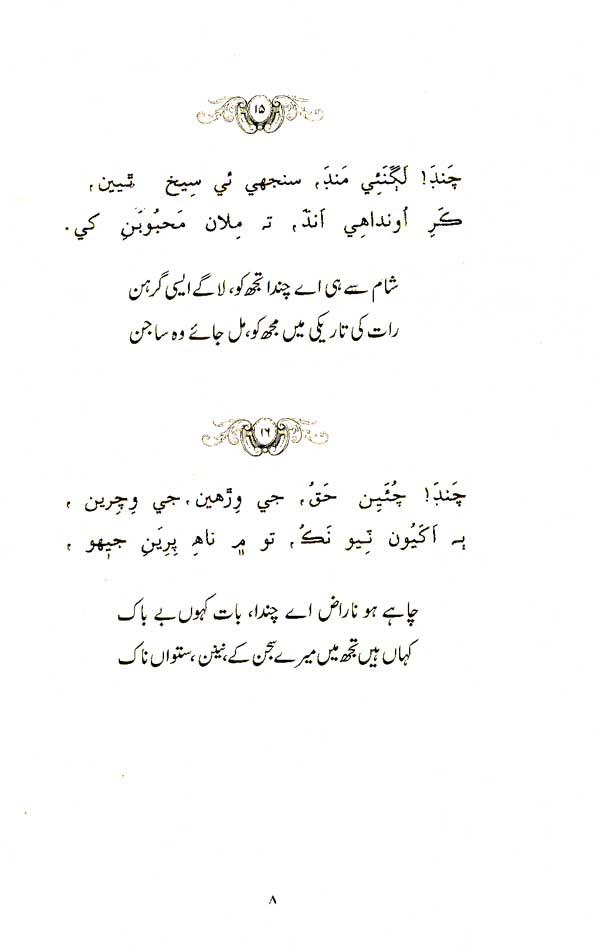 ۱۵
چَنڊَ! لَڳُنَئِي مَنڊَ، سنجهي ئي سِيخ ٿيين،
ڪَرِ اُونداهِي اَنڌَ، تہ مِلان مَحبُوبَنِ کي.
شام سے ہی اے چندا تجھ کو، لاگے ایسی گرہن
رات کی تاریکی میں مجھ کو، مل جائے وہ ساجن
۱۶
چَنڊَ! چُئَيِن حَقُ، جي وِڙهين، جي وِچِرين ،
ٻہ اَکيُون ٽِيو نَڪُ، تو ۾ ناهِ پِريَنِ جيهو ،
چاہے ہو ناراض اے چندا، بات کہوں بے باک
کہاں ہیں تجھ میں میرے سجن کے، نینن ، ستواں ناک
۸